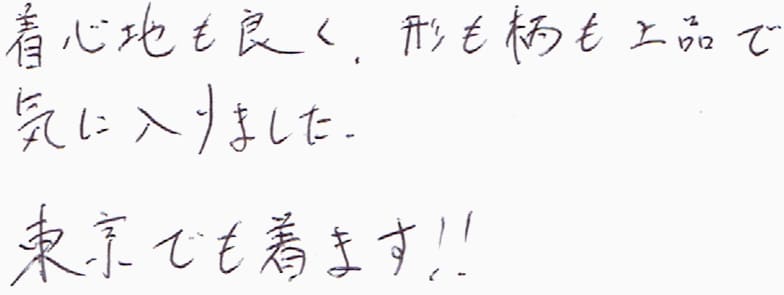 着心地も良く、形も柄も上品で
気に入りました。
東京でも着ます!!